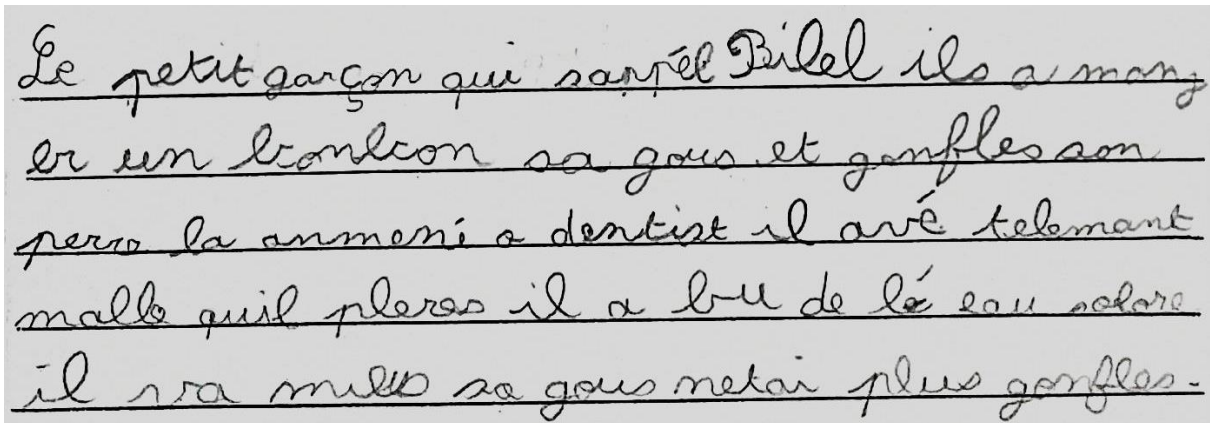 Le petit garçon qui sappél Bilel ils a mang
er un bonbon sa gous et gonfles son
perre la anmené a dentist il avé telemant
malle quil pleres il a bu de lé eau
il va mieus sa gous netai plus gonfles.